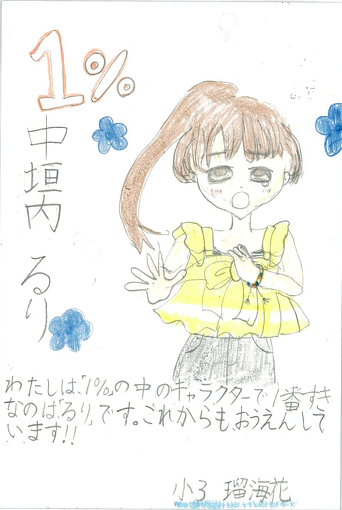 1%
中垣内 るり
わたしは、「1%」の中のキャラクターで1番すき
なのは「るり」です。これからも、おうえんして
います!!
小3 瑠海花